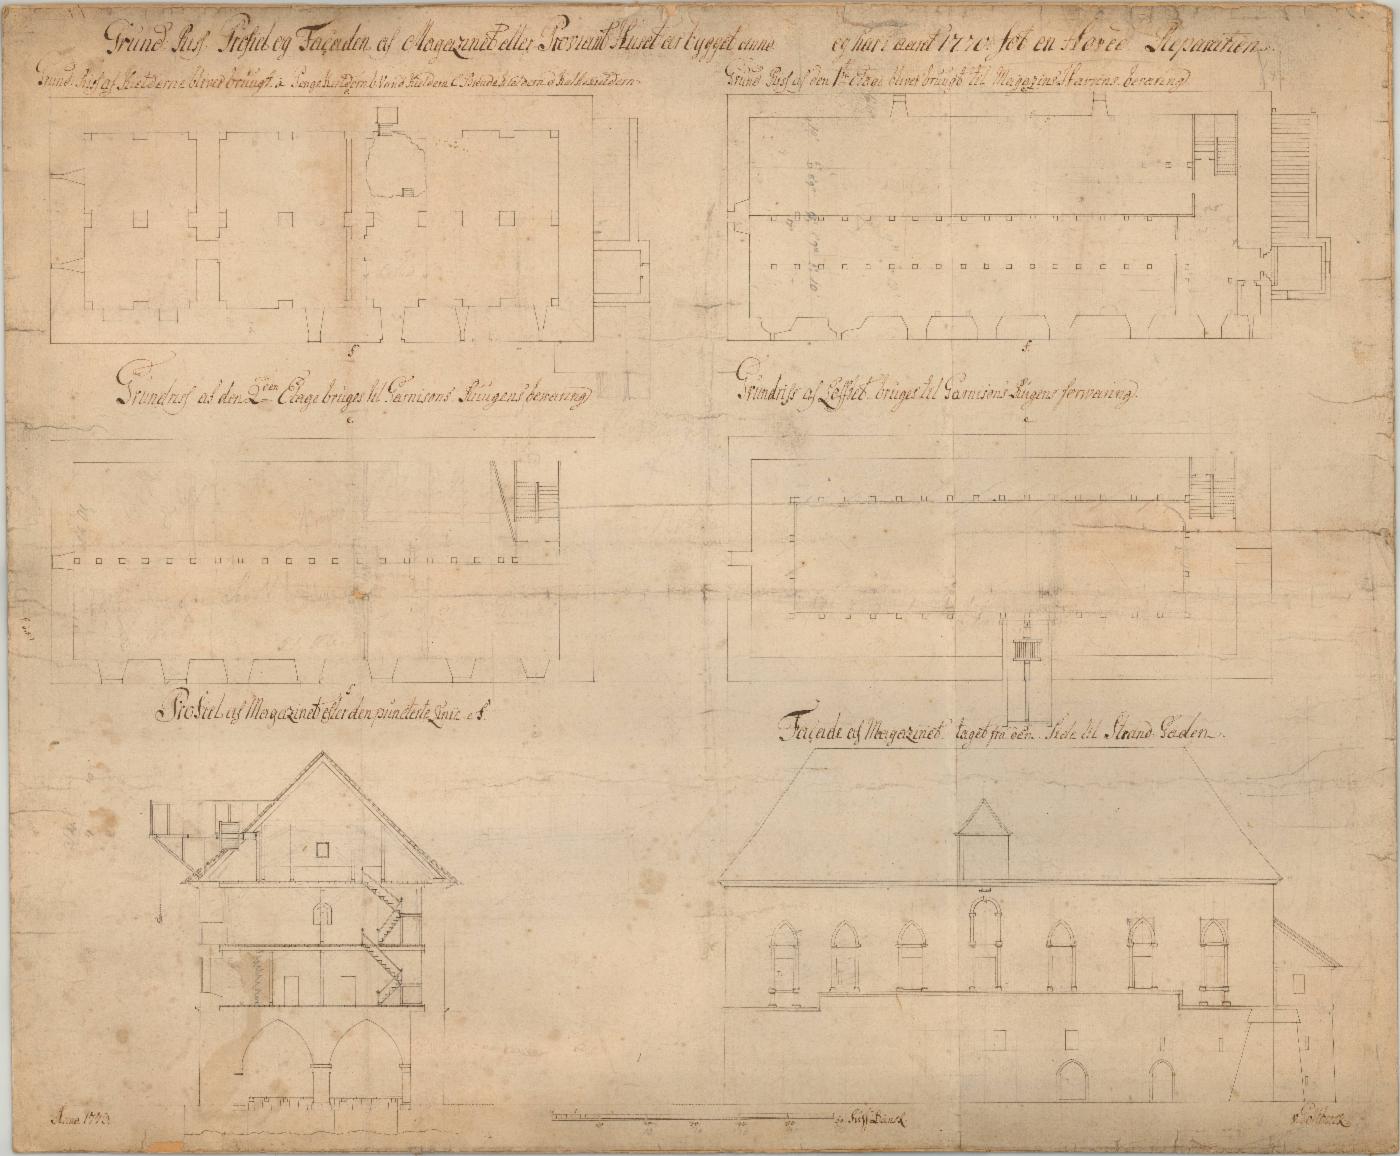 Grund Riss Profiel og Façaden af Magazinet eller Proviant Huset er bygget anno og har i aaret 1770 fot en Hoved Reparation.
Grund Riss af Kielderne bliver brüügt. a Penge Kielderen b Vand Kieldern C d
e
Grund Riss af den 1te Etage bliver brüügt til Magazins bevaring
e
f.
f.
Grundriss af den 2den Etage brüges til Garnisons Rüügens bevaring
e.
Grundriss af Lofftet brüges til Garnisons Rügens forwaring.
e
f
Profiel af Magazinet efter den püncterte Linie e f.
Façade af Magazinet taget fra den Side til Strand Gaden.
Anno 1773.
Dansk